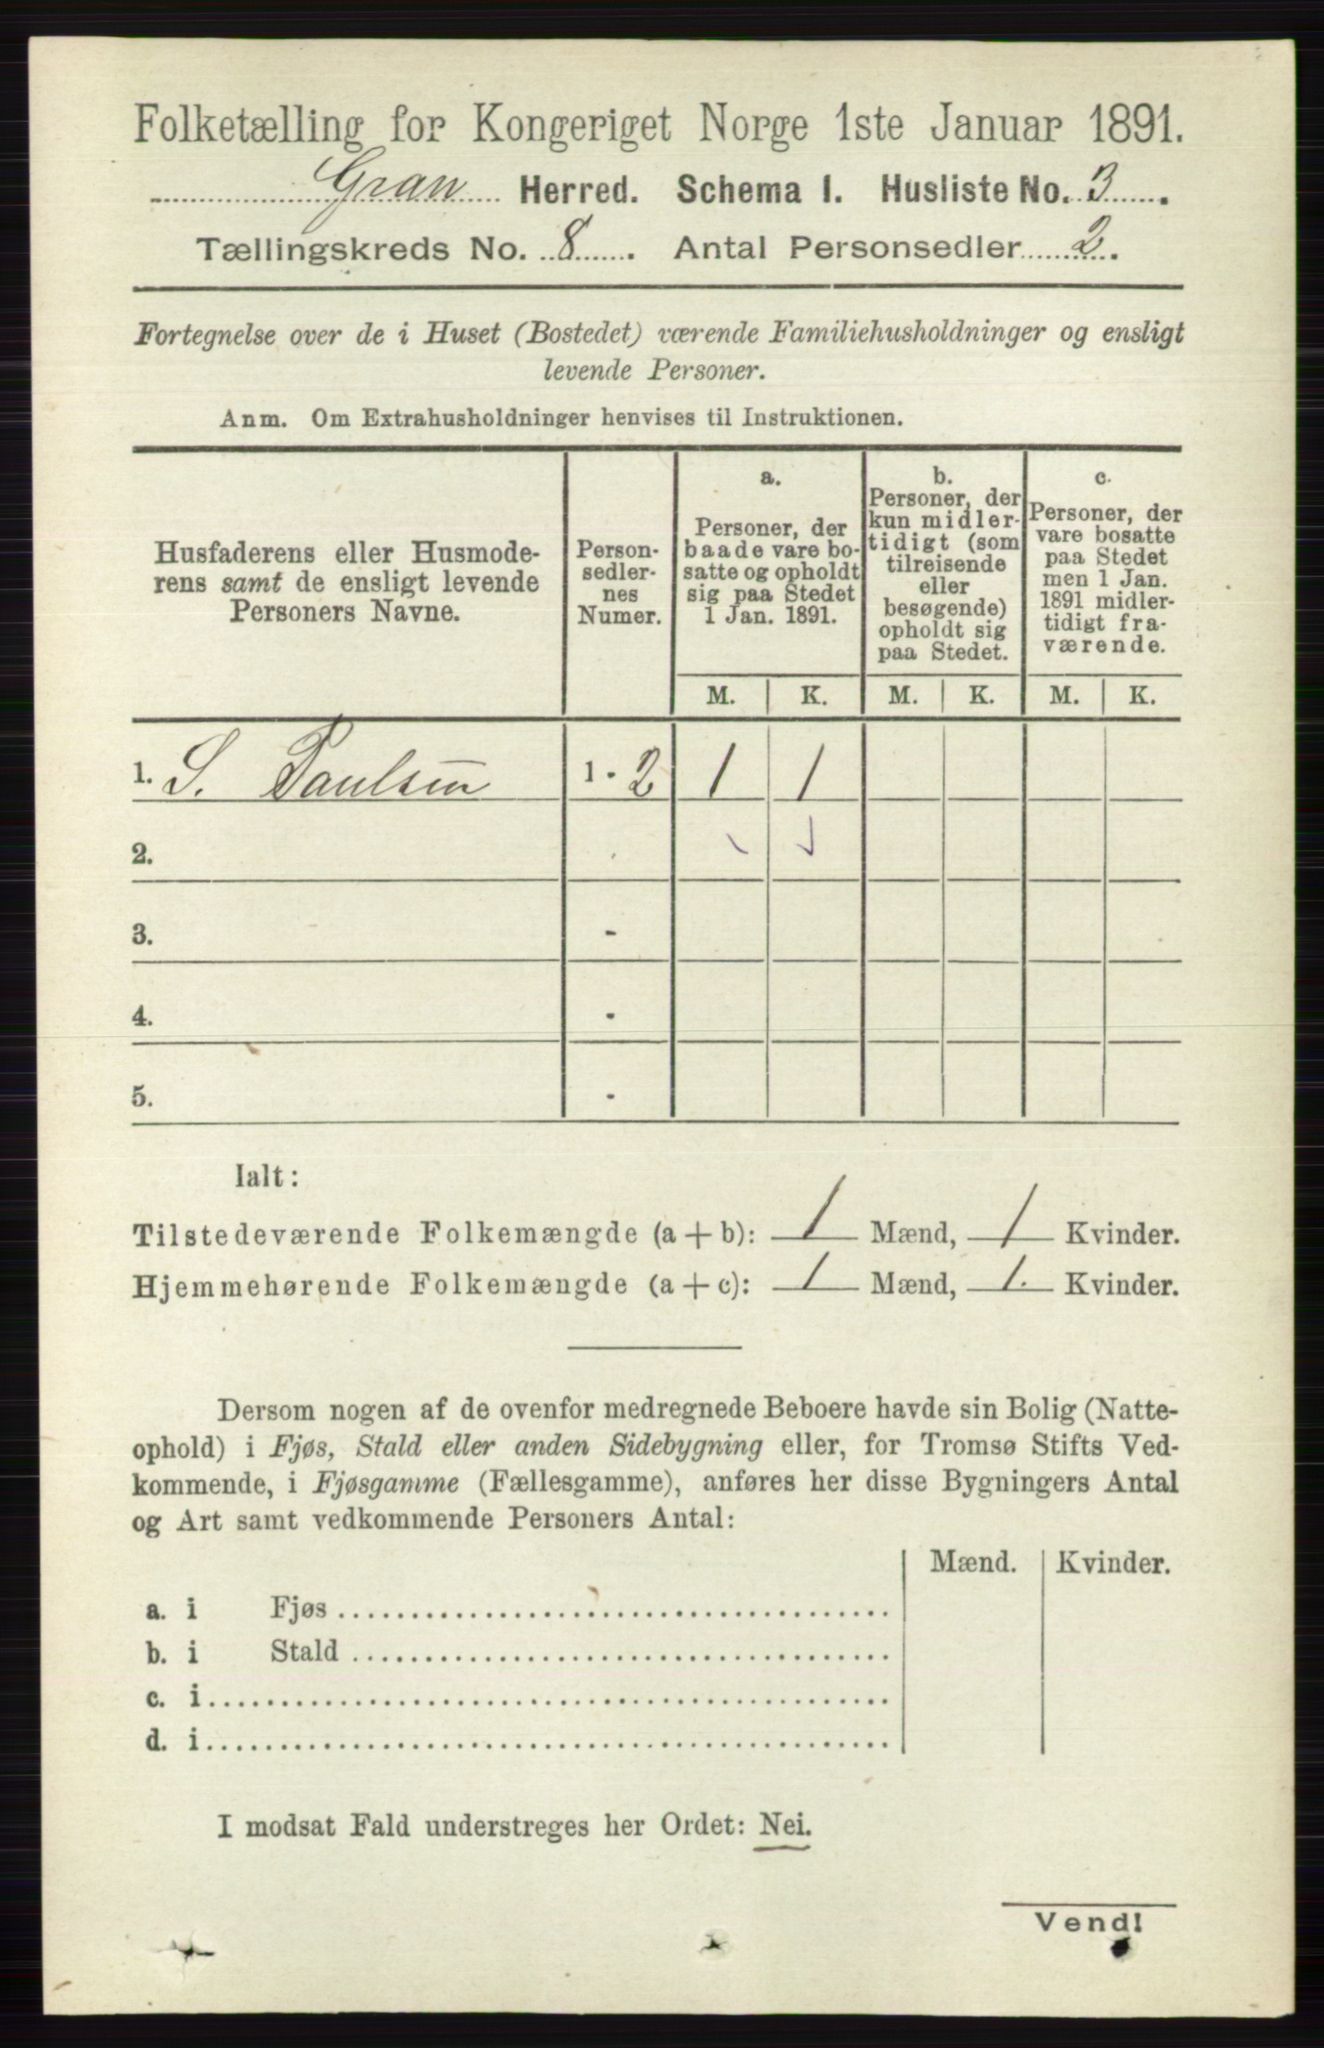 Folketælling for Kongeriget Norge 1ste Januar 1891.
Gran Herred. Schema I. Husliste No. 3.
Tællingskreds No. 8. Antal Personsedler 2.
Fortegnelse over de i Huset (Bostedet) værende Familiehusholdninger og ensligt
levende Personer.
Anm. Om Extrahusholdninger henvises til Instruktionen.
Husfaderens eller Husmode-
rens samt de ensligt levende
Personers Navne.
Person-
sedler-
nes
Numer.
a.
Personer, der
baade vare bo-
satte og opholdt
sig paa Stedet
1 Jan. 1891.
b.
Personer, der
kun midler-
tidigt (som
tilreisende
eller
besøgende)
opholdt sig
paa Stedet.
c.
Personer, der
vare bosatte
paa Stedet
men 1 Jan.
1891 midler-
tidigt fra-
værende.
M. K. M. K. M. K.
1. S. Paulsen 1 - 2 1 1
2.
3. -
4. -
5. -
Ialt:
Tilstedeværende Folkemængde (a + b): 1 Mænd, 1 Kvinder.
Hjemmehørende Folkemængde (a + c): 1 Mænd, 1. Kvinder.
Dersom nogen af de ovenfor medregnede Beboere havde sin Bolig (Natte-
ophold) i Fjøs, Stald eller anden Sidebygning eller, for Tromsø Stifts Ved-
kommende, i Fjøsgamme (Fællesgamme), anføres her disse Bygningers Antal
og Art samt vedkommende Personers Antal:
Mænd. Kvinder.
a. i Fjøs
b. i Stald
c. i
d. i
I modsat Fald understreges her Ordet: Nei.
Vend!